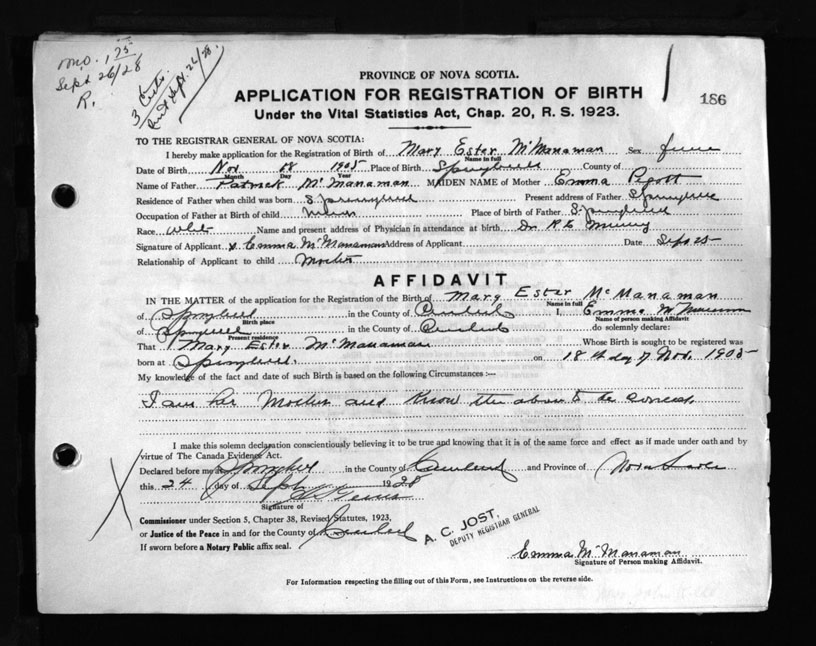 mo. 1 75
Sept 26/28
R.
3 Certs.
Sept. 26/28
PROVINCE OF NOVA SCOTIA.
APPLICATION FOR REGISTRATION OF BIRTH
186
Under the Vital Statistics Act, Chap. 20, R. S. 1923.
TO THE REGISTRAR GENERAL OF NOVA SCOTIA:
I hereby make application for the Registration of Birth of Mary Ester McManaman Sex
Name in full
Date of Birth Nov 18 1905 Place of Birth Springhill County of
Month Day Year
Name of Father Patrick McManaman MAIDEN NAME of Mother Emma Pigott
Residence of Father when child was born Springhill Present address of Father Springhill
Occupation of Father at Birth of child Miner Place of birth of Father Springhill
Race White Name and present address of Physician in attendance at birth Dr
Signature of Applicant x Emma McManaman Address of Applicant Date Sept 25
Relationship of Applicant to child Mother
AFFIDAVIT
IN THE MATTER of the application for the Registration of the Birth of Mary Ester McManaman
Name in full
of Springhill in the County of Cumberland I, Emma McManaman
Birth place Name of person making Affidavit
of Springhill in the County of Cumberland do solemnly declare:
Present residence
That Mary Ester McManaman Whose Birth is sought to be registered was
born at Springhill on 18th day of Nov. 1905
My knowledge of the fact and date of such Birth is based on the following Circumstances :—
I am her Mother and know the above to be correct
I make this solemn declaration conscientiously believing it to be true and knowing that it is of the same force and effect as if made under oath and by
virtue of The Canada Evidence Act.
Declared before me at Springhill in the County of Cumberland and Province of Nova Scotia
this 24 day of Sept 1928
Signature of
Commissioner under Section 5, Chapter 38, Revised Statutes, 1923,
or Justice of the Peace in and for the County of Cumberland
If sworn before a Notary Public affix seal.
A. C. JOST,
DEPUTY REGISTRAR GENERAL
Emma McManaman
Signature of Person making Affidavit.
For Information respecting the filling out of this Form, see Instructions on the reverse side.